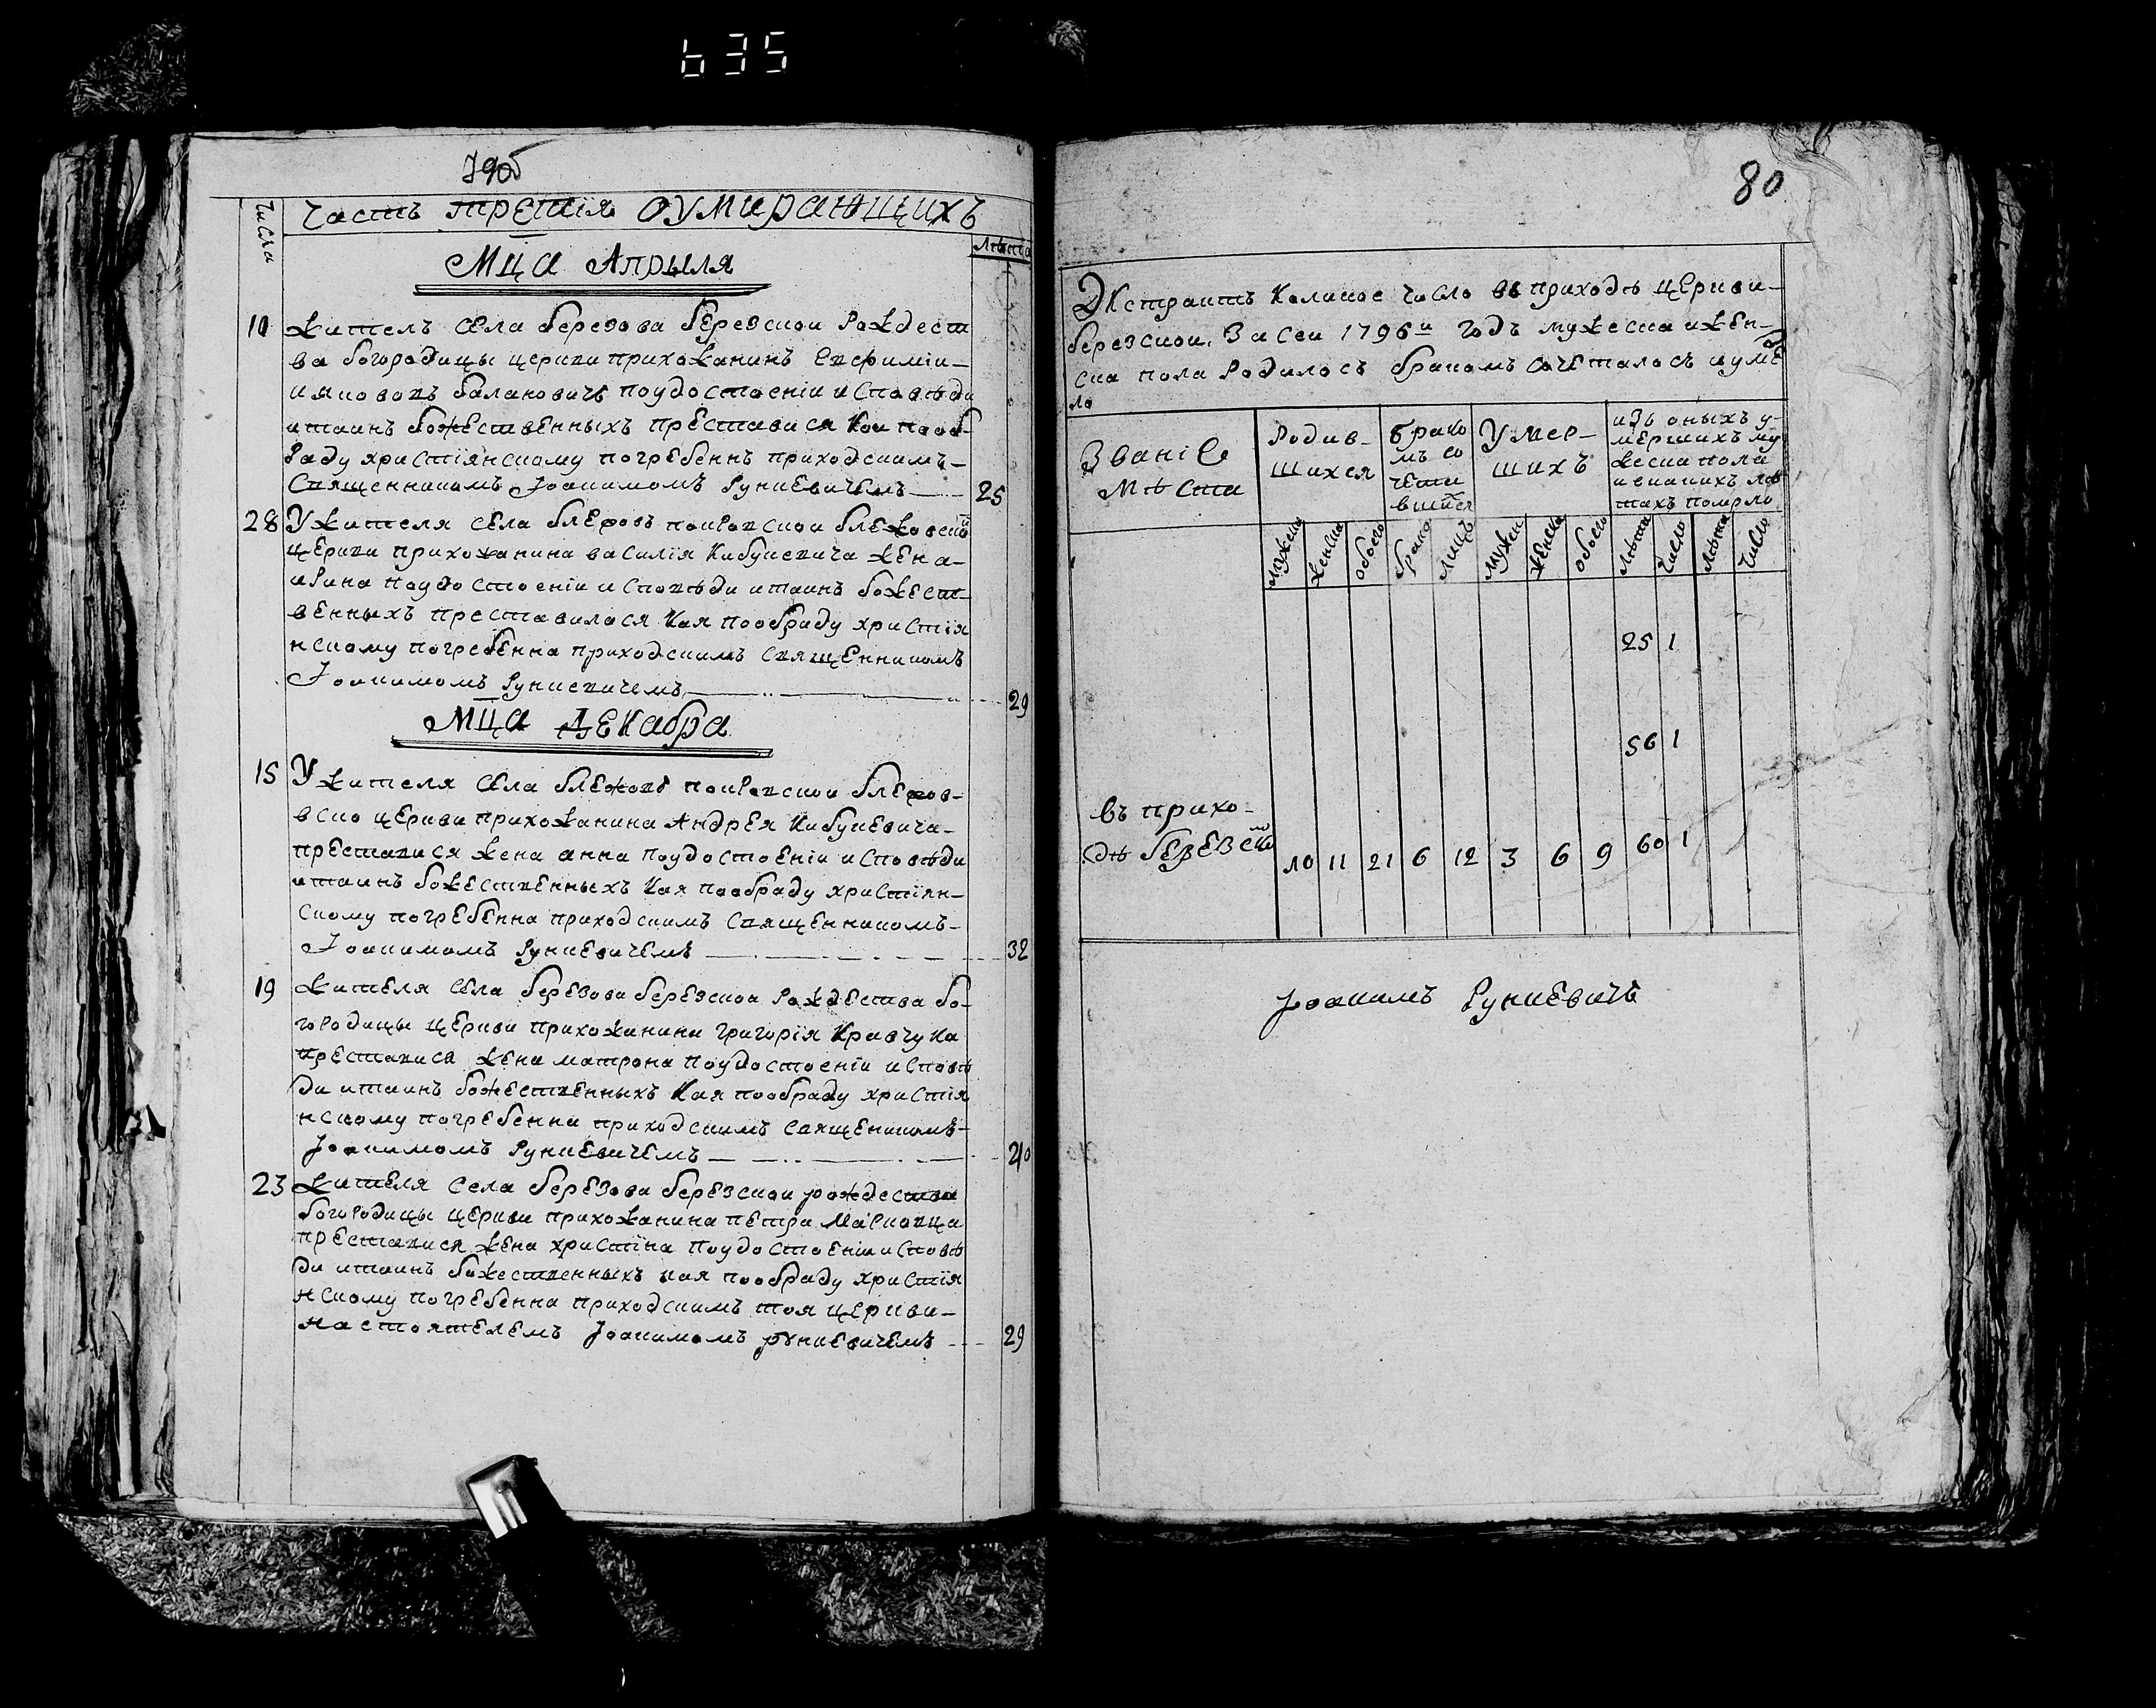 635
79об
Числа
Часть третія о умирающихъ
Лѣта
Мца Апрыля
10 Жителъ села Березова Березскои Рождест
ва богородицы церкви прихожанинъ
Балановичъ поудостоеніи исповѣди
итаинъ божественныхъ преставися кои пооб
раду христіянскому погребеннъ приходскимъ
Священникомъ Іоакимомъ Рункевичемъ 25
28 Ужителя села покровскои
церкви прихожанина василія Кибукевича жена
ирина поудостоеніи исповѣди итаинъ божест
венныхъ преставилася кая пообраду христія
нскому погребенна приходскимъ священникомъ
Іоакимомъ Рункевичемъ 29
Мца Декабра
15 Ужителя села блежовъ покровскои
церкви прихожанина Андрея Кибукевича
преставися жена анна поудостоеніи исповѣди
итаинъ божественныхъ кая пообраду христіян
скому погребенна приходскимъ священникомъ
Іоакимомъ Рункевичемъ 32
19 Жителя села Березова Березскои Рождества бо
городицы церкви прихожанина григорія Кравчука
преставися жена матрона поудостоеніи исповѣ
ди итаинъ божественныхъ кая пообраду христія
нскому погребенна приходскимъ священикомъ
Іоакимомъ Рункевичемъ 40
23 Жителя села Березова Березскои рождества
богородицы церкви прихожанина петра
преставися жена христіна поудостоеніи исповѣ
ди итаинъ божественныхъ кая пообраду христія
нскому погребенна приходскимъ тоя церкви
настоятелемъ Іоакимомъ рункевичемъ 29
80
Экстрактъ Каликое число въ приходѣ церкви
березскои. За сеи 1796й годъ мужеска ижен
ска пола родилось бракомъ сочеталось иумер
ло
Званіе
мѣста
Родив-
шихся
брако
мъ со
чета
вшихся
Умер-
шихъ
изъ оныхъ у-
мершихъ му
жеска пола
ивкакихъ лѣ
тахъ помрло
мужска женска обоего брако лицъ мужск женска обоего лѣта число лѣта число
25 1
56 1
въ прихо-
дѣ березско 10 11 21 6 12 3 6 9 60 1
Іоакимъ Рункевичъ